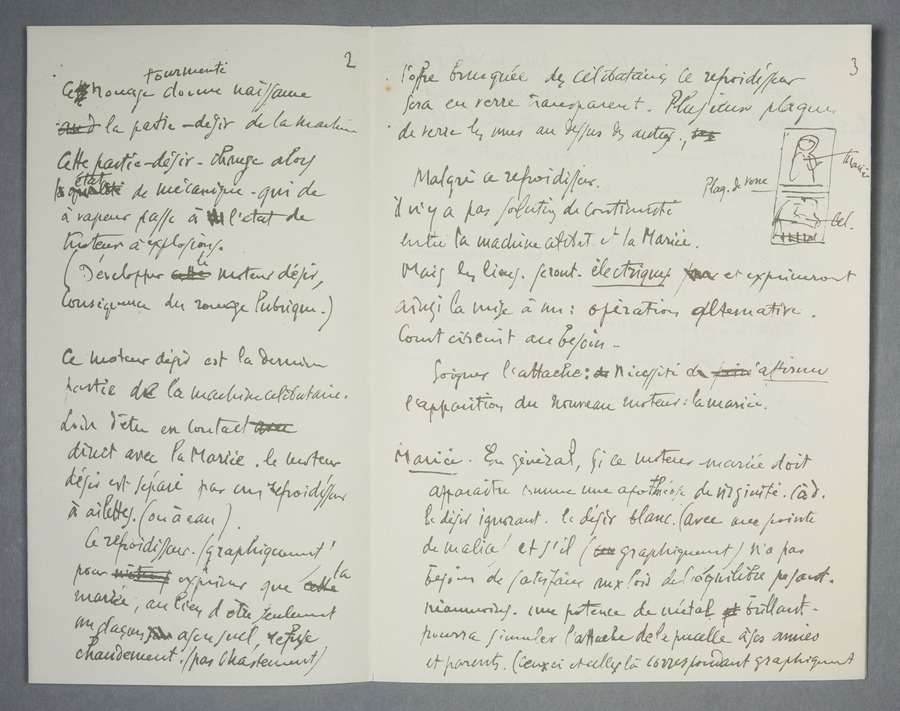 2
tourmenté
Ce rouage donne naissance
à la partie-désir de la machine
Cette partie-désir-change alors
état
de mécanique-qui de
à vapeur passe à l'état de
moteur à explosions.
(Développer le moteur désir,
conséquence du rouage lubrique.)
Ce moteur désir est la dernière
partie de la machine célibataire.
Loin d'être en contact
direct avec la Mariée. le moteur
désir est séparé par un refroidisseur
à ailettes. (ou à eau).
Ce refroidisseur. (graphiquement)
pour exprimer que la
mariée, au lieu d'être seulement
un glaçon asensuel, refuse
chaudement. (pas chastement)
3
l'offre brusquée des célibataires Ce refroidisseur
sera en verre transparent. Plusieurs plaques
de verre les unes au dessus des autres.
Mariée
Plaq. de verre
Cel.
Malgré ce refroidisseur.
il n'y a pas solution de continuité
entre la machine célibat. et la Mariée.
Mais les liens. seront. électriques et exprimeront
ainsi la mise à nu: opération alternative.
Court circuit au besoin-
Soigner l'attache: nécessité d'affirmer
l'apparition du nouveau moteur: la mariée.
Mariée. En général, si ce moteur mariée doit
apparaître comme une apothéose de virginité. càd.
le désir ignorant. le désir blanc. (avec une pointe
de malice) et s'il (graphiquement) n'a pas
besoin de satisfaire aux lois de l'équilibre pesant.
néanmoins. une potence de métal brillant.
pourra simuler l'attache de la pucelle à ses amies
et parents. (ceux ci et celles là correspondant graphiquement